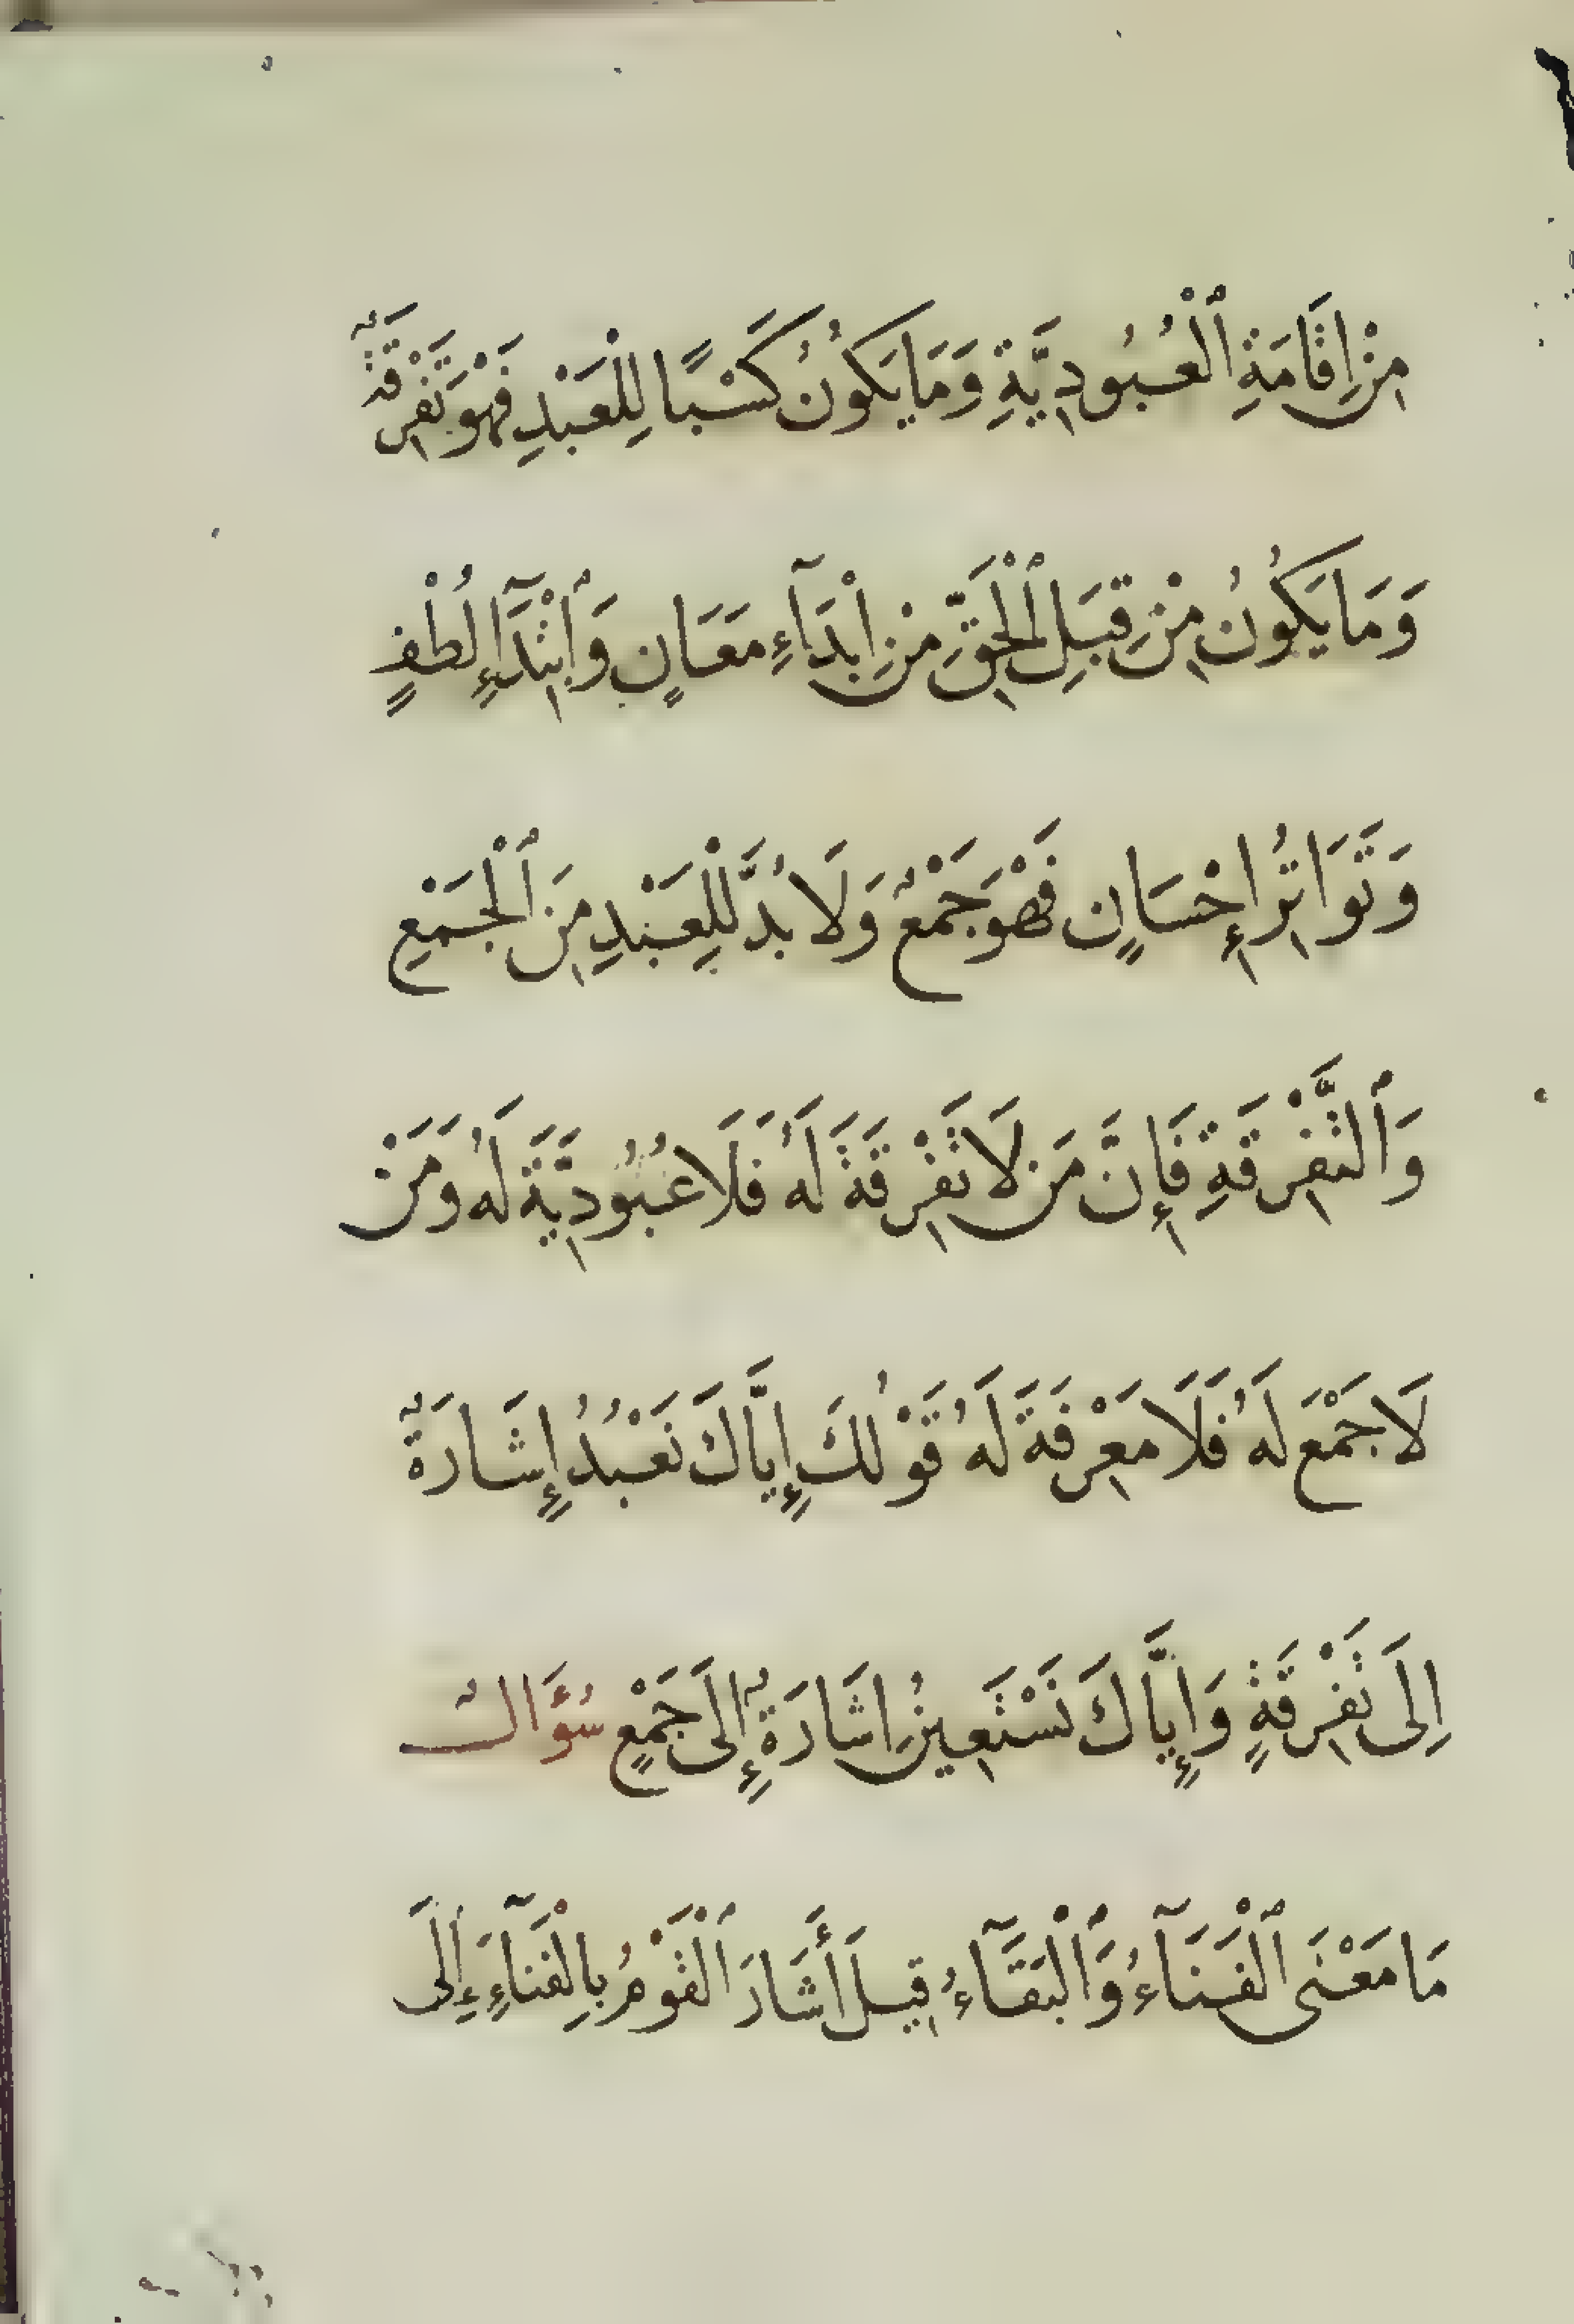 مِنْ إِقَامَةِ ٱلْعُبُودِيَّةِ وَمَا يَكُونُ كَسْبًا لِلْعَبْدِ فَهْوَ تَفْرِقَةٌ
وَمَا يَكُونُ مِنْ قِبَلِ ٱلْحَقِّ مِنْ اِبْدَآءِ مَعَانٍ وَٱبْتِدَآءِ لُطْفٍ
وَتَوَاتُرِ إِحْسَانٍ فَهْوَ جَمْعٌ وَلَا بُدَّ لِلْعَبْدِ مِنَ ٱلْجَمْعِ
وَٱلتَّفْرِقَةِ فَإِنَّ مَنْ لَا تَفْرِقَةَ لَهُ فَلَا عُبُودِيَّةَ لَهُ وَمَنْ
لَا جَمْعَ لَهُ فَلَا مَعْرِفَةَ لَهُ قَوْلُكَ إِيَّاكَ نَعْبُدُ إِشَارَةٌ
اِلَى تَفْرِقَةٍ وَإِيَّاكَ نَسْتَعِينُ اِشَارَةٌ إِلَى جَمْعٍ سُؤَالٌ
مَا مَعْنَى ٱلْفَنَآءِ وَٱلْبَقَآءِ قِيلَ أَشَارَ ٱلْقَوْمُ بِالْفَنَآءِ إِلَى